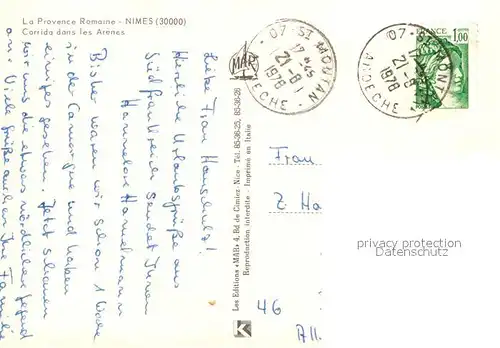 La Provence Romaine - NIMES (30000)
Corrida dans les Arènes
Liebe Frau Hauschulz!
Herzliche Urlaubsgrüße aus
Südfrankreich sendet Ihnen
Hannelore
Bisher waren wir schon 1 Woche
in der Camargue und haben
einiges gesehen. Jetzt schauen
wir uns die etwas nördlichere Gegend
an. Viele Grüße auch an Ihre Familie
Les Editions «MAR» 4, Bd de Cimiez, Nice - Tél. 85-36-25, 85-36-26
Reproduction interdite - Imprimé en Italie
MAR
K
07-ST
17 H45
21-8
1978
ARDECHE
07-ST
21-8
1978
ARDECHE
FRANCE
1,00
Frau
Z. Ha
46
All
privacy protection
DATENSCHUTZ